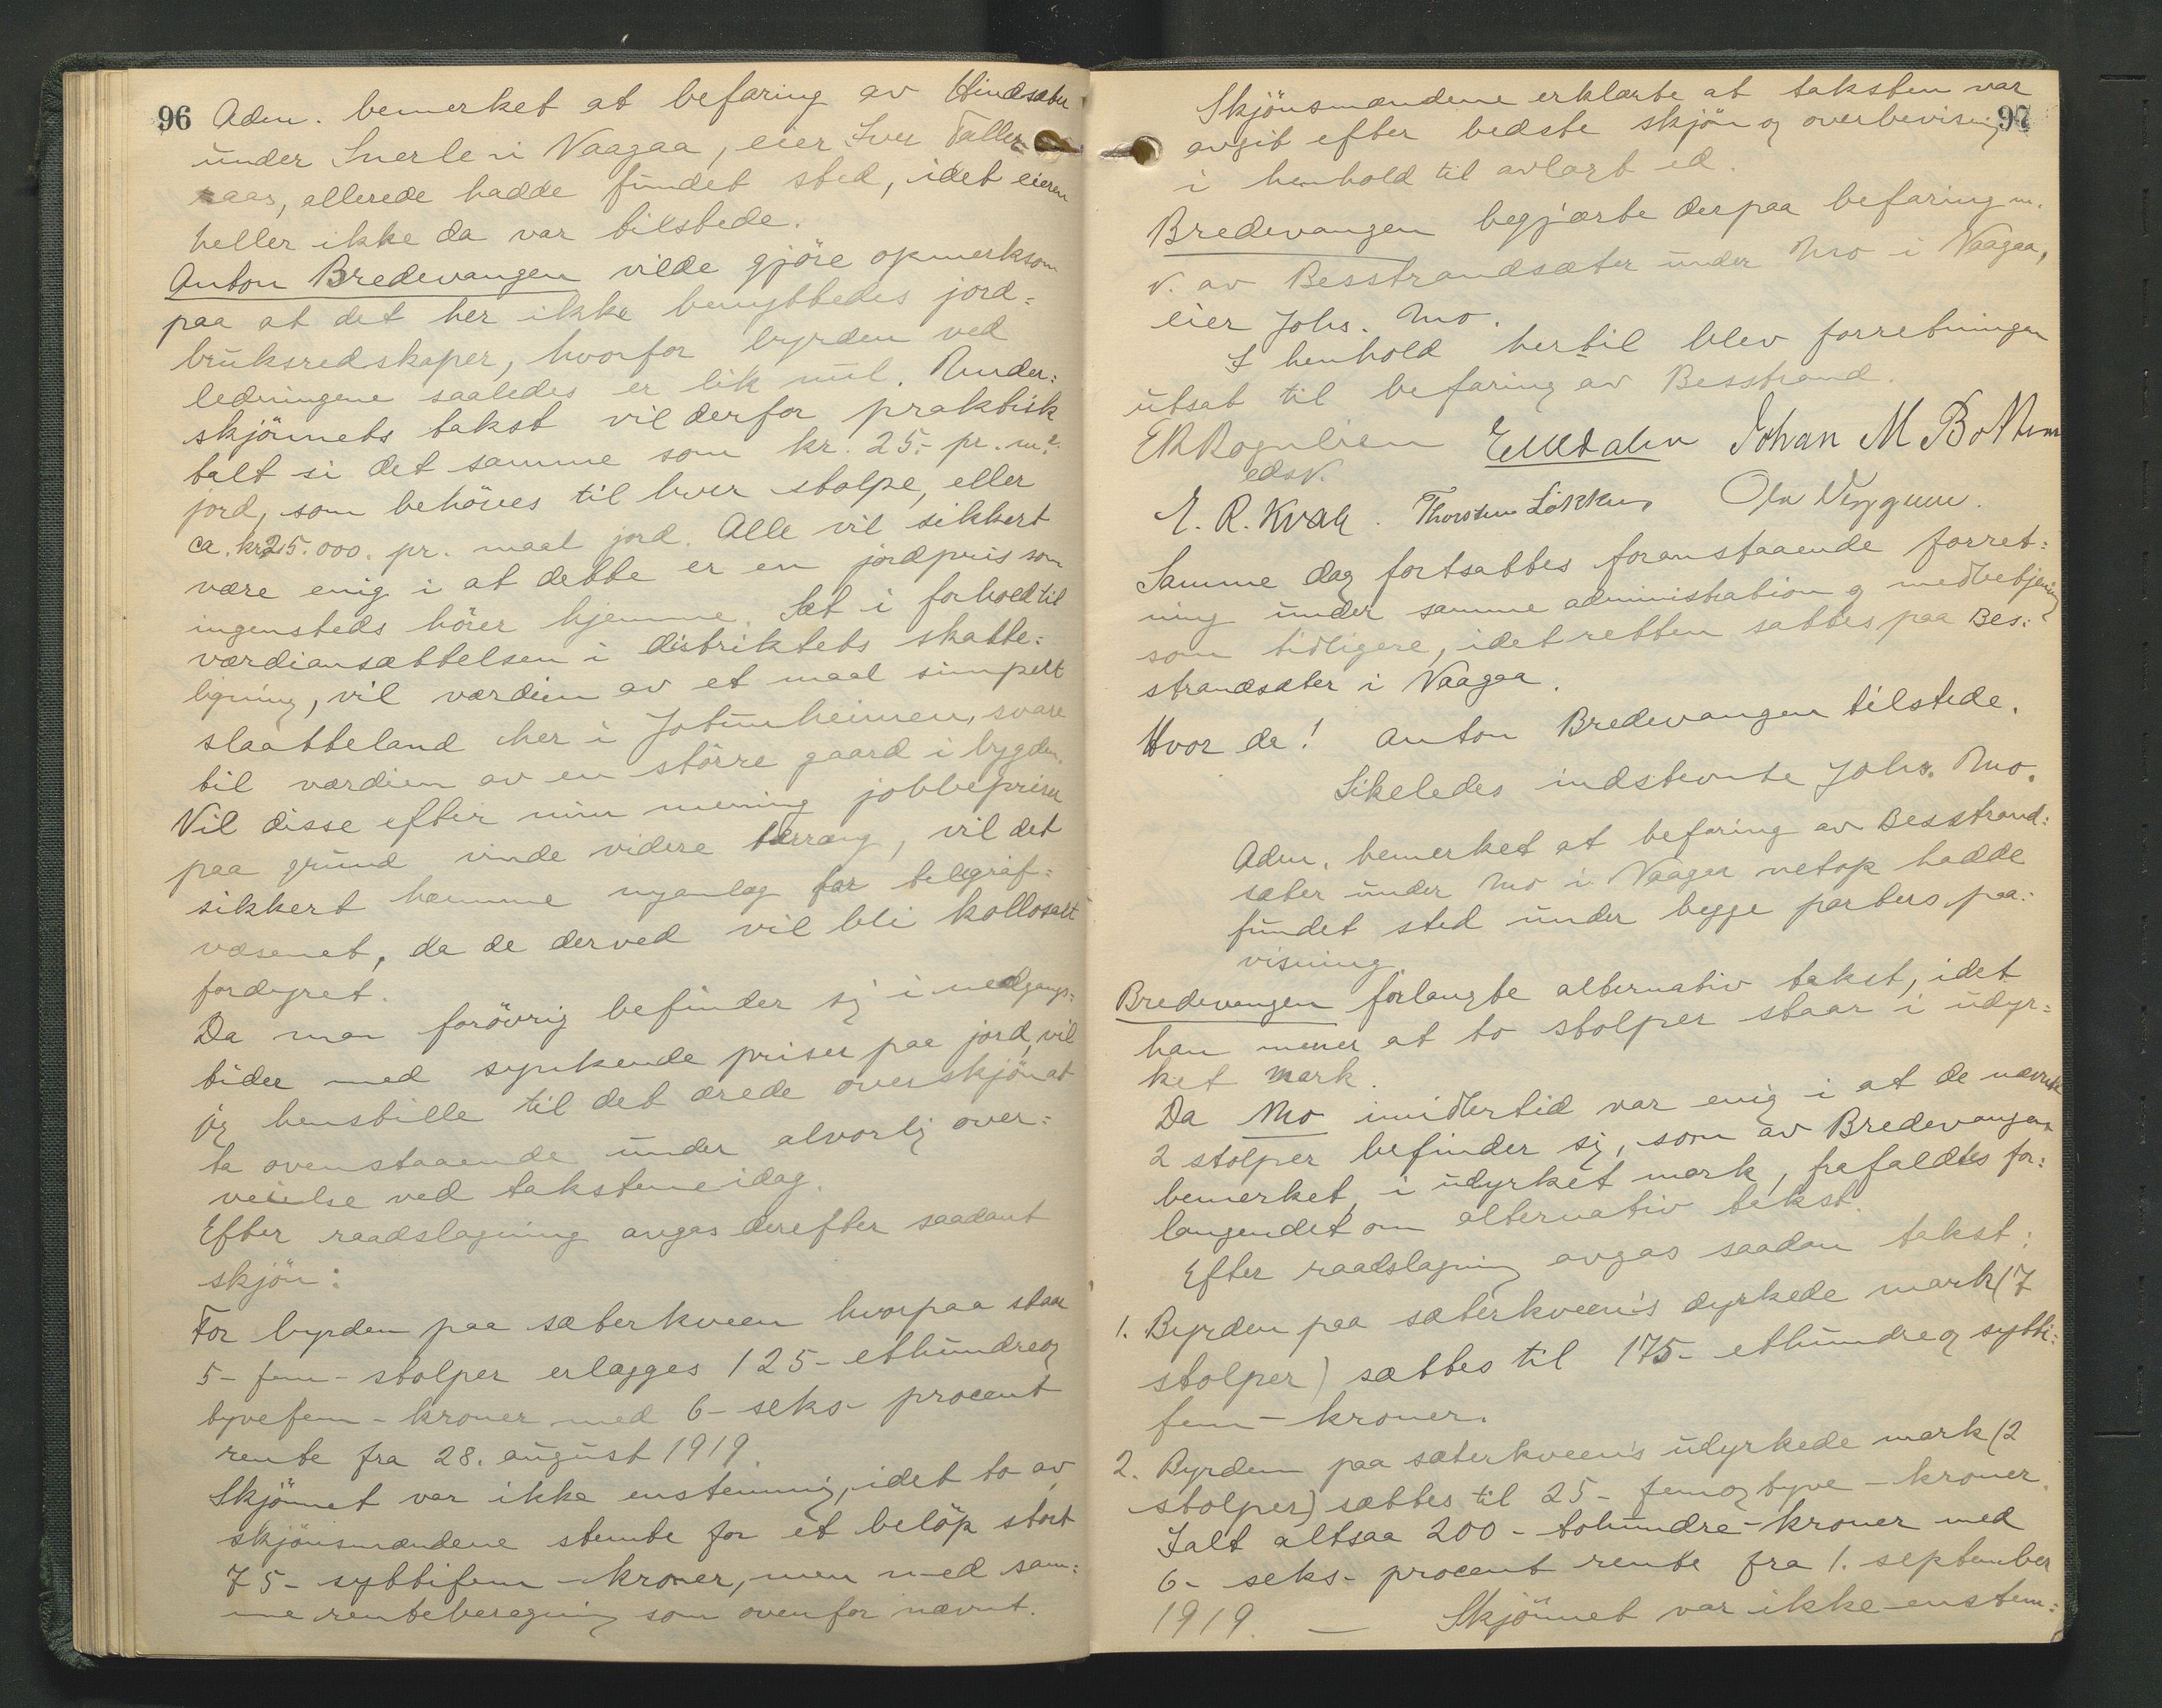 96
Adm. bemerket at befaring av Hindsæter
under Snerle i Vaagaa, eier Iver Talle-
raas, allerede hadde fundet sted, idet eieren
heller ikke da var tilstede.
Anton Bredevangen vilde gjöre opmerksom
paa at det her ikke benyttedes jord=
bruksredskaper, hvorfor byrden ved
ledningene saaledes er lik nul. Under=
skjönnets takst vil derfor praktisk
talt si det samme som kr. 25.- pr. m².
jord, som behöves til hver stolpe, eller
ca. kr 25.000. pr. maal jord. Alle vil sikkert
være enig i at dette er en jordpris som
ingensteds hörer hjemme. Sæt i forhold til
værdiansættelsen i distriktets skatte=
ligning, vil værdien av et maal simpelt
slaatteland her i Jotunheimen, svare
til værdien av en större gaard i bygden.
Vil disse efter min mening jobbepriser
paa grund vinde videre terræng, vil det
sikkert hæmme nyanlæg for telegraf=
væsenet, da de derved vil bli kollosalt
fordyret.
Da man forövrig befinder sig i nedgangs=
tider med synkende priser paa jord, vil
jeg henstille til det ærede overskjön at
ta ovenstaaende under alvorlig over=
veielse ved takstene idag.
Efter raadslagning avgas derefter saadant
skjön:
For byrden paa sæterkveen hvorpaa staar
5- fem- stolper erlægges 125- ethundreog
tyvefem - kroner med 6- seks- procent
rente fra 28. august 1919.
Skjönnet var ikke enstemmig, idet to av
skjönsmændene stemte for et belöp stort
75- syttifem - kroner, men med sam=
me renteberegning som ovenfor nævnt.
97
Skjönsmændene erklærte at taksten var
avgit efter bedste skjön og overbevisning
i henhold til avlagt ed.
Bredevangen begjærte derpaa befaring m.
v. av Besstrandsæter under Mo i Vaagaa,
eier Johs. Mo.
I henhold hertil blev forretningen
utsat til befaring av Besstrand.
E R Rognlien Johan M Bottem
edsv.
E. R. Kvale. Thorstein Lökken Ola Veggum.
Samme dag fortsattes foranstaaende forret=
ning under samme administration og medbetjening
som tidligere, idet retten sattes paa Bes=
strandsæter i Vaagaa.
Hvor da! Anton Bredevangen tilstede.
Likeledes indstevnte Johs. Mo.
Adm. bemerket at befaring av Besstrand=
sæter under Mo i Vaagaa netop hadde
fundet sted under begge parters paa=
visning.
Bredevangen forlangte alternativ takst, idet
han mener at to stolper staar i udyr=
ket mark.
Da Mo imidlertid var enig i at de nævnte
2 stolper befinder sig, som av Bredevangen
bemerket, i udyrket mark, frafaldtes for=
langendet om alternativ takst.
Efter raadslagning avgas saadan takst:
1. Byrden paa sæterkveen's dyrkede mark (7
stolper) sættes til 175- ethundreog sytti=
fem - kroner.
2. Byrden paa sæterkveen's udyrkede mark (2
stolper) sættes til 25- femogtyve - kroner.
Ialt altsaa 200 - tohundre - kroner med
6- seks- procent rente fra 1. september
1919. — Skjönnet var ikke enstem=